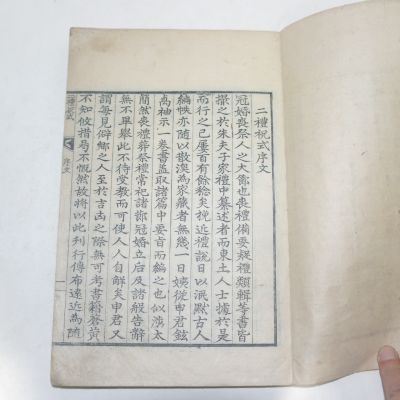 二禮祝式序文
冠婚喪祭人之大節也喪禮備要疑禮類輯等書皆
撮之於朱夫子家禮中纂述者而東土人士據於是
而行之已屢百有餘稔矣挽近禮說日以泯默古人
編帙亦隨以散渙為家藏者無幾一日姨從申君鉉
袖示一卷書盖取諸篇中要旨而編之也似太
簡然喪禮葬祭禮常祀諸節冠婚立后及諸般告辭
無不畢舉此不待受教而可使人人自解矣申君又
謂每見僻鄉之人至於吉凶之際無可考書籍
不知攸措曷不慨然故將以此刊行傳布遠近為隨
二禮祝式
序文
一